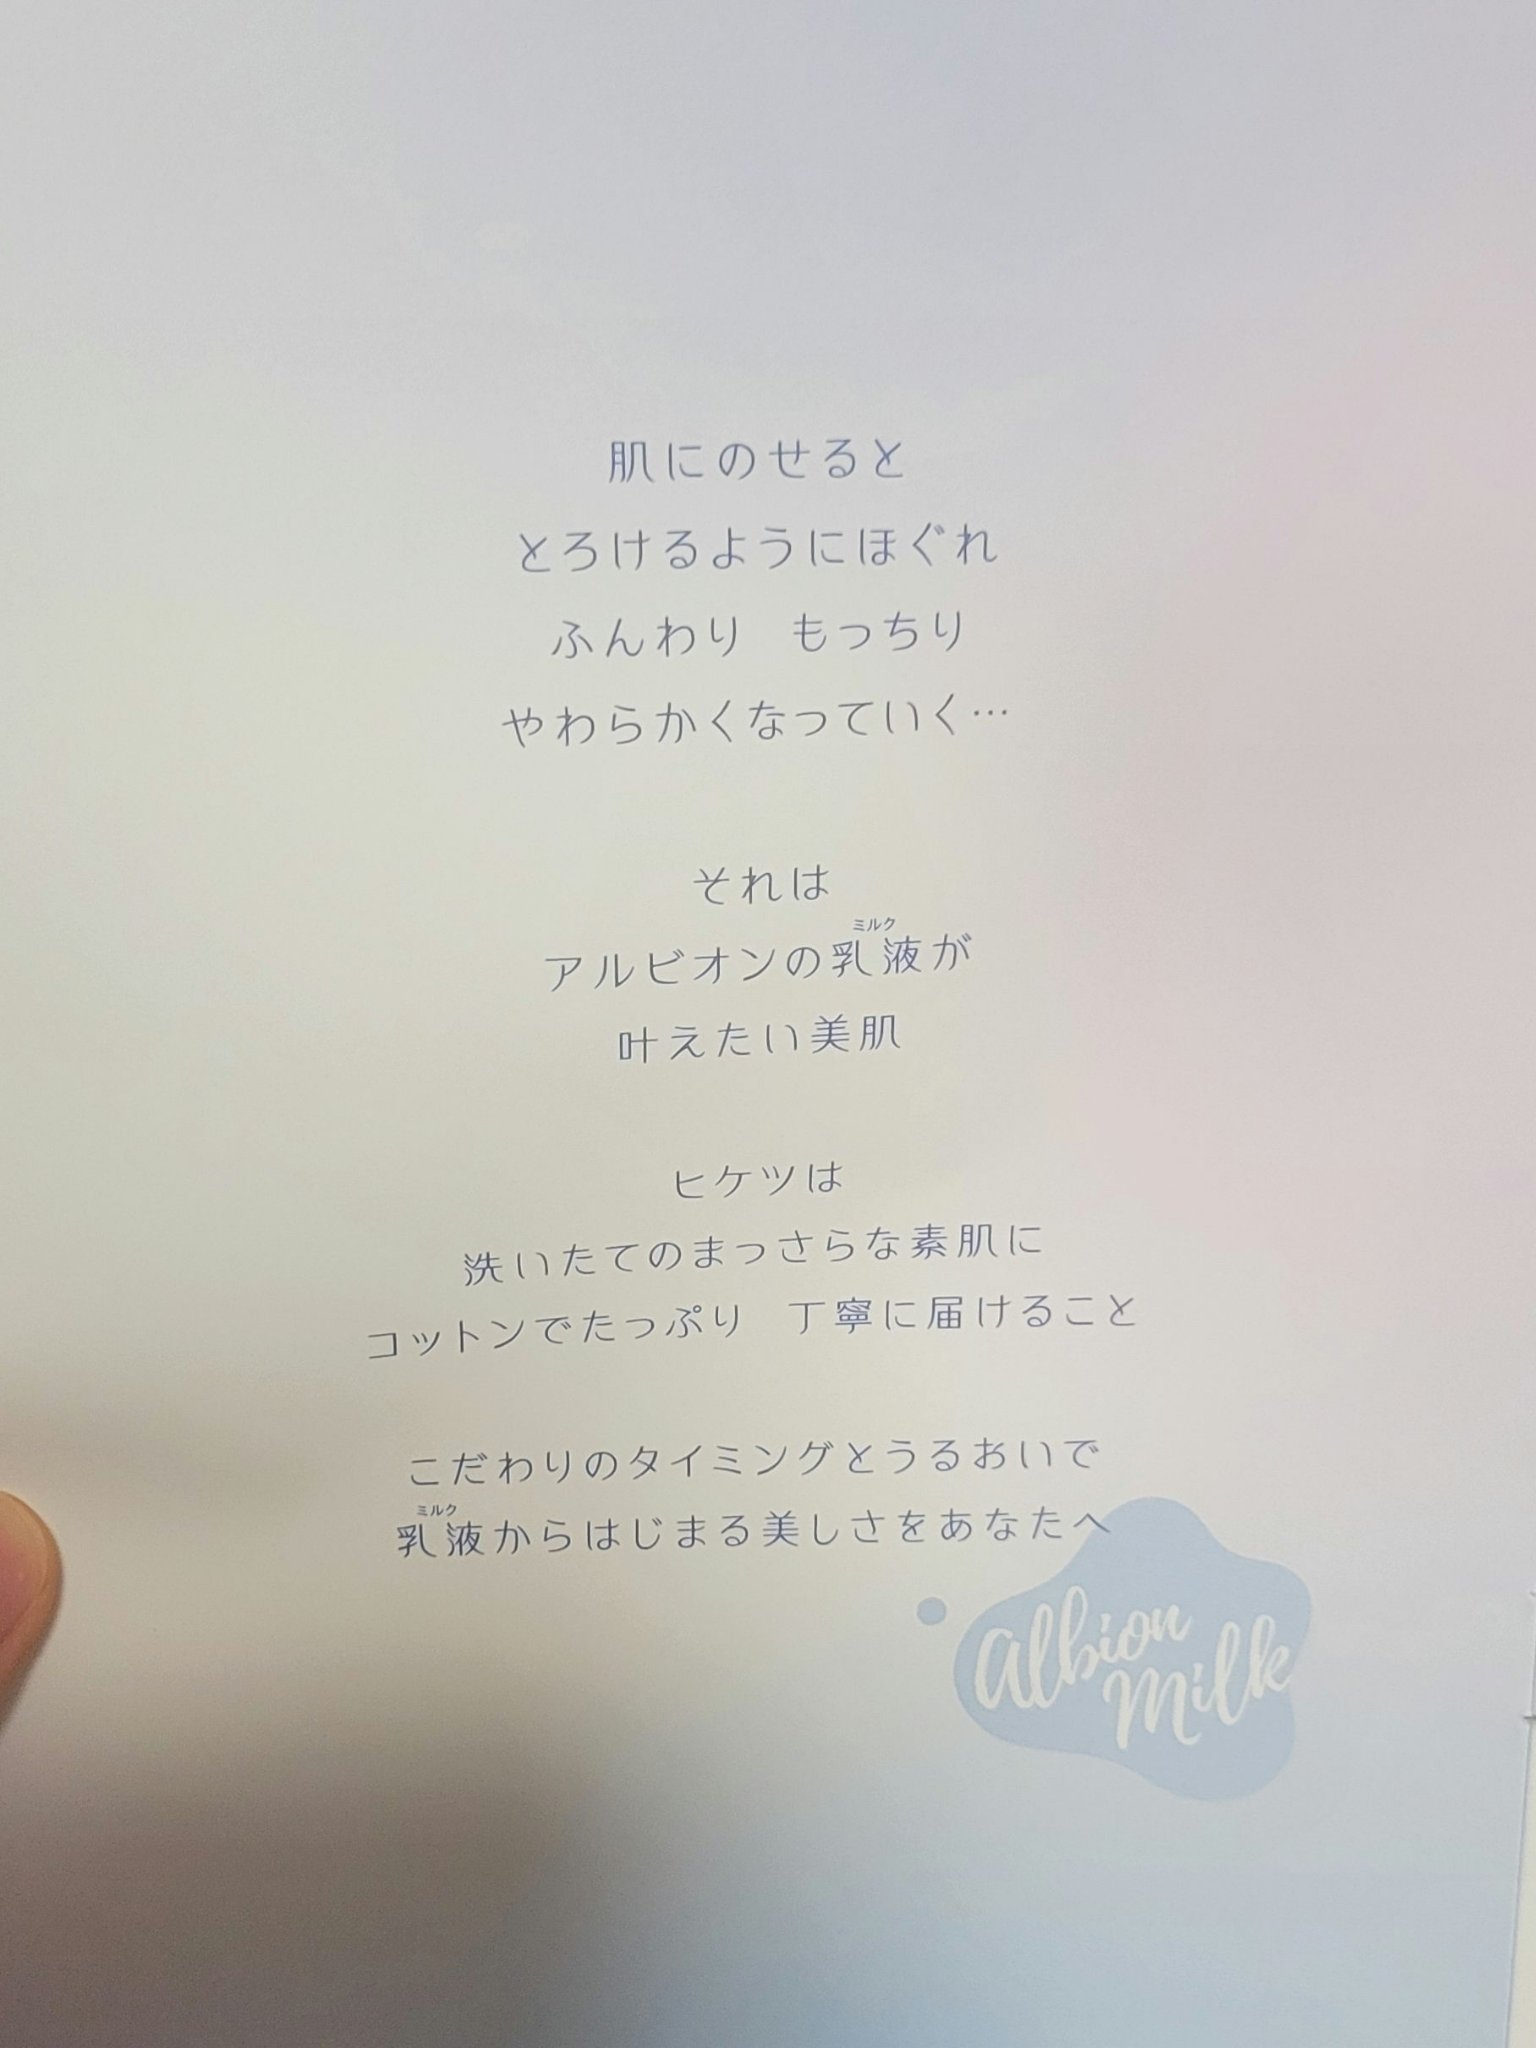 肌にのせると
とろけるようにほぐれ
ふんわり　もっちり
やわらかくなっていく…
それは
ミルク
アルビオンの乳液が
叶えたい美肌
ヒケツは
洗いたてのまっさらな素肌に
コットンでたっぷり　丁寧に届けること
こだわりのタイミングとうるおいで
ミルク
乳液からはじまる美しさをあなたへ
albion
Milk